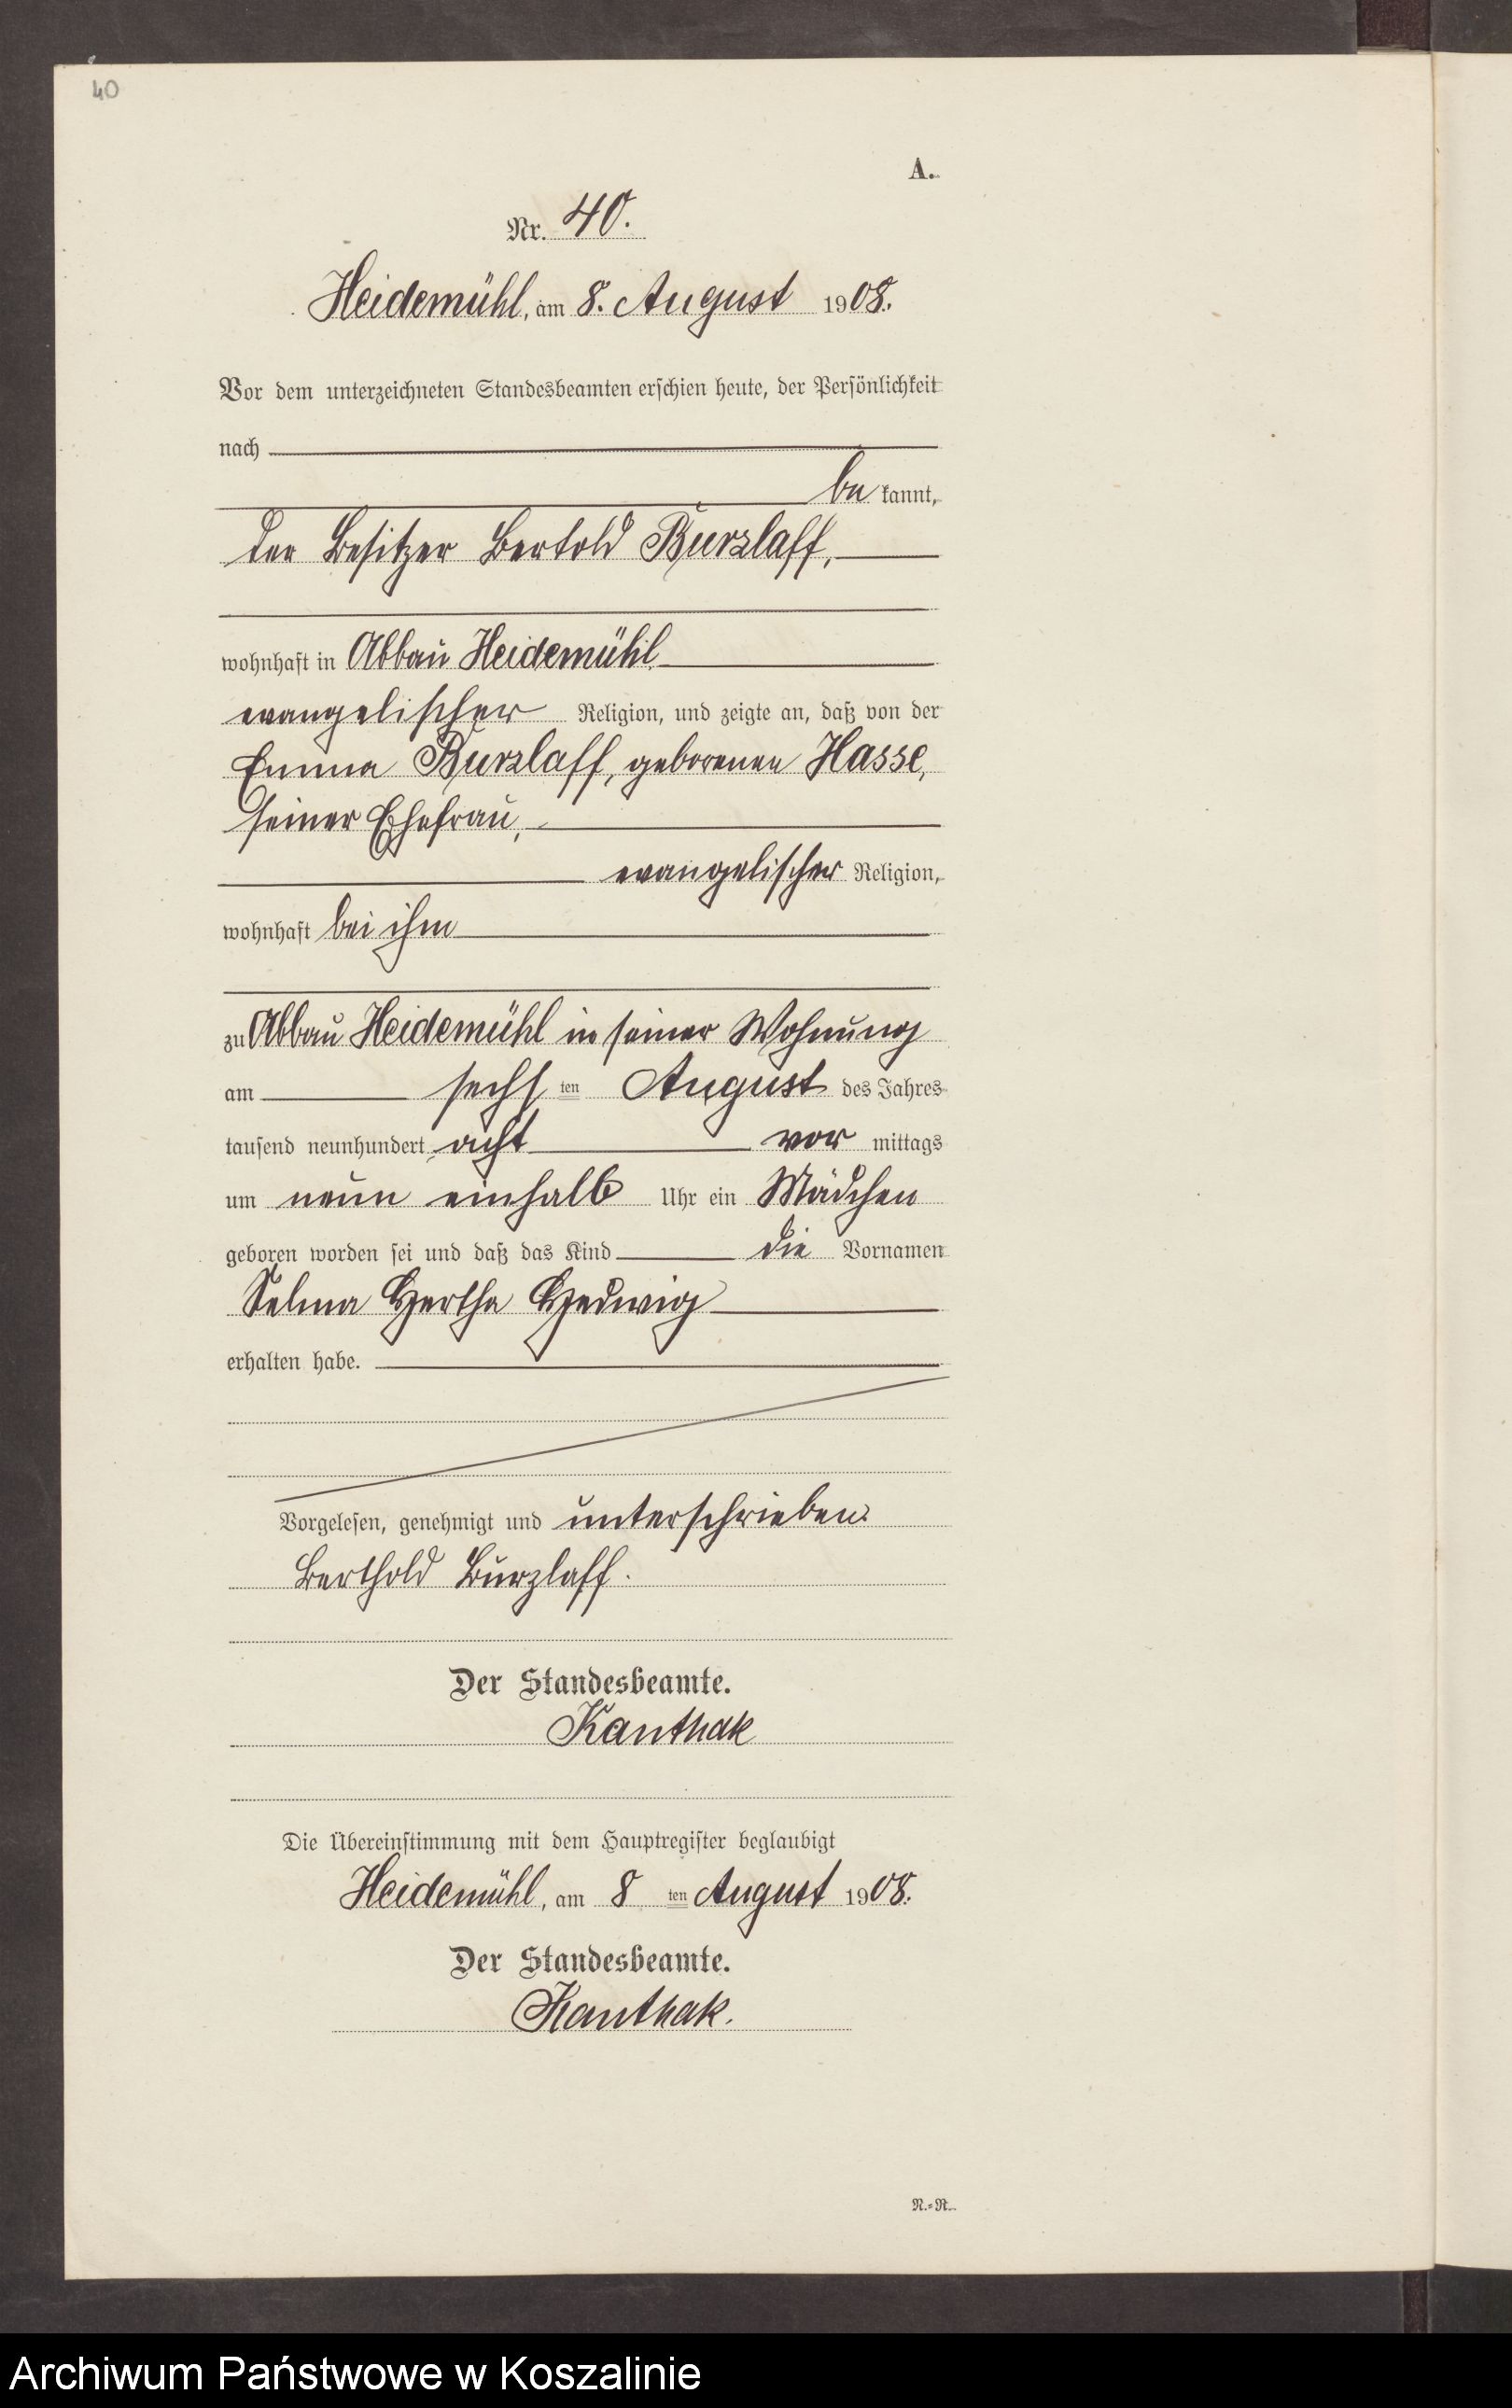 40
A.
Nr. 40.
Heidemühl, am 8. August 1908.
Vor dem unterzeichneten Standesbeamten erschien heute, der Persönlichkeit
nach
be kannt,
der Besitzer Bertold Burzlaff,
wohnhaft in Abbau Heidemühl
evangelischer Religion, und zeigte an, daß von der
Emma Burzlaff, geborenen Hasse,
seiner Ehefrau,
evangelischer Religion,
wohnhaft bei ihm
zu Abbau Heidemühl in seiner Wohnung
am sechs ten August des Jahres
tausend neunhundert acht vor mittags
um neun einhalb Uhr ein Mädchen
geboren worden sei und daß das Kind die Vornamen
Selma Hertha Hedwig
erhalten habe.
Vorgelesen, genehmigt und unterschrieben.
Berthold Burzlaff.
Der Standesbeamte.
Kanthak
Die Übereinstimmung mit dem Hauptregister beglaubigt
Heidemühl, am 8 ten August 1908.
Der Standesbeamte.
Kanthak.
N.=R.
Archiwum Państwowe w Koszalinie